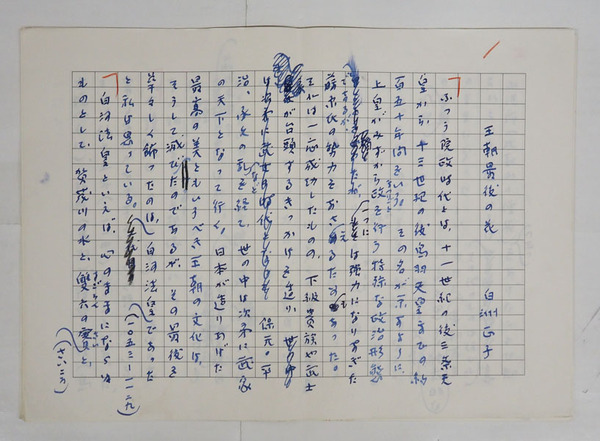 王朝最後の花
白洲正子
ふつう院政時代とは、十一世紀の後三条天
皇から、十三世紀の後鳥羽天皇までの約
百五十年間をいう。その名が示すように、
上皇がみずから政を行う特殊な政治形態
であるが、一つには強力になりすぎた
藤原氏の勢力をおさえるためもあった。
それは一応成功したものの、下級貴族や武士
が台頭するきっかけを造り、
保元・平
治、承久の乱などを経て、世の中は次第に武家
の天下となって行く。日本が造りあげた
最高の美ともいうべき王朝の文化は、
そうして滅びたのであるが、その最後を
華々しく飾ったのは、白河法皇であった
と私は思っている。
(一〇五三-一一二九)
白河法皇といえば、心のままにならぬ
ものとして、賀茂川の水と、双六の賽と、
(さい)